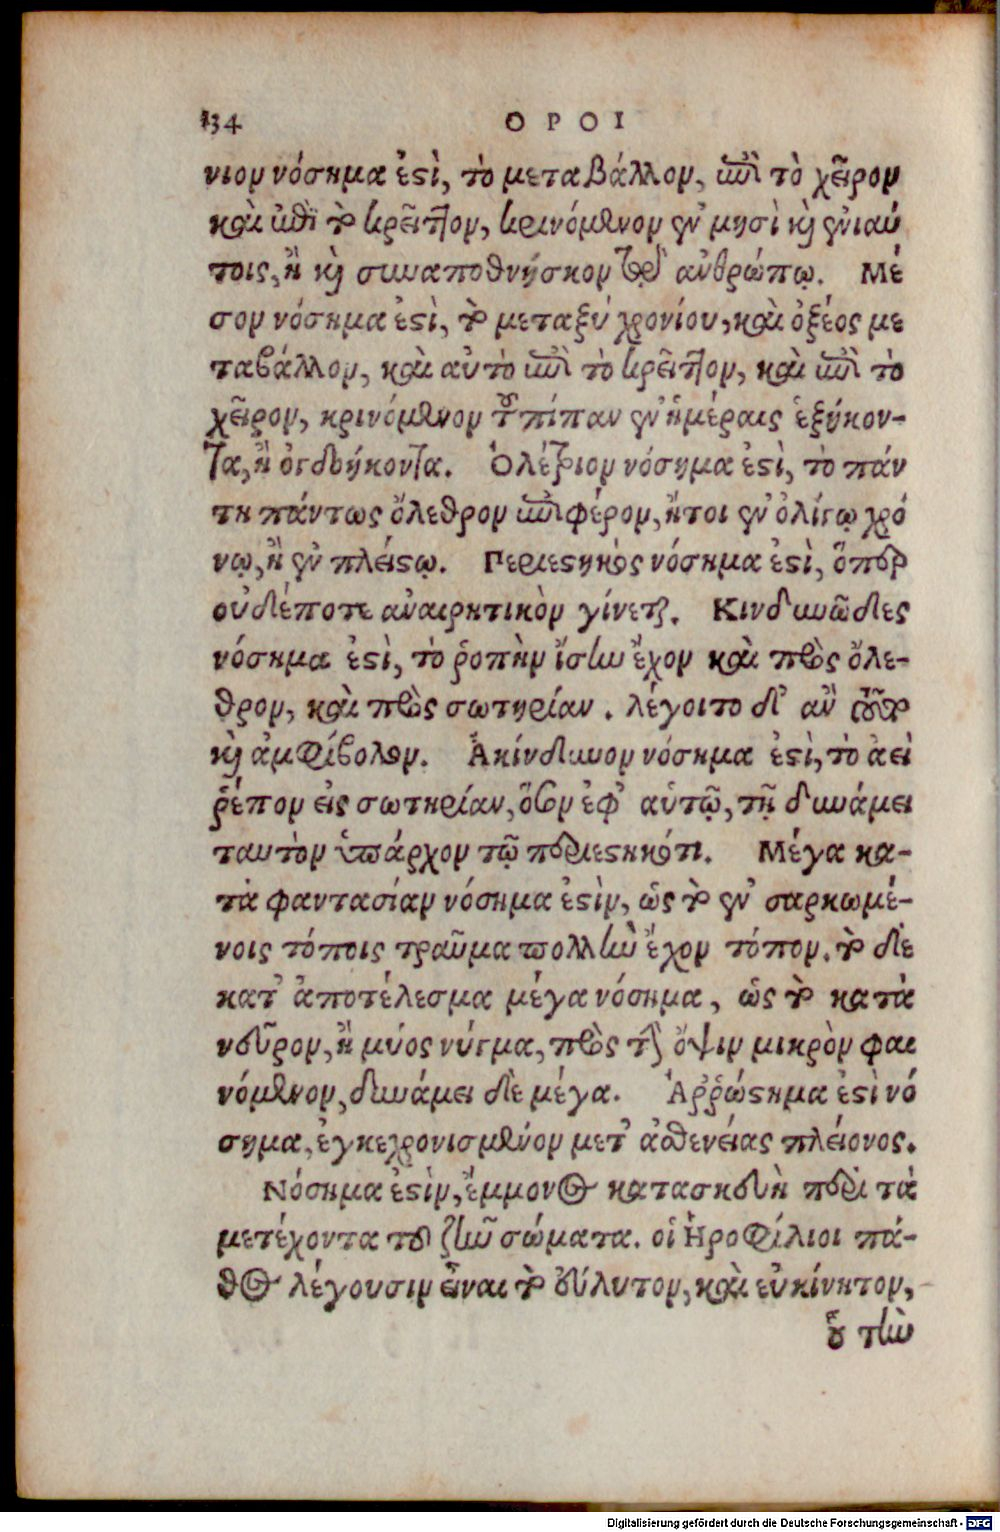 134 ΟΡΟΙ
νιον νόσημα ἐστὶ, τὸ μεταβάλλον, ἐπὶ τὸ χεῖρον
καὶ ἐπὶ τὸ κρεῖττον, κρινόμενον ἐν μησὶ καὶ ἐνιαυ
τοῖς, ἢ καὶ συναποθνήσκον τῷ ἀνθρώπῳ. Μέ
σον νόσημα ἐστὶ, τὸ μεταξύ χρονίου, καὶ ὀξέος με
ταβάλλον, καὶ αὐτὸ ἐπὶ τὸ κρεῖττον, καὶ ἐπὶ τὸ
χεῖρον, κρινόμενον τοὐπίπαν ἐν ἡμέραις ἑξήκον-
τα, ἢ ὀγδοήκοντα. Ὀλέθριον νόσημα ἐστὶ, τὸ πάν
τη πάντως ὄλεθρον ἐπιφέρον, ἤτοι ἐν ὀλίγῳ χρό
νῳ, ἢ ἐν πλείστῳ. Περιεστηκὸς νόσημα ἐστὶ, ὅπερ
οὐδέποτε ἀναιρητικὸν γίνεται. Κινδυνῶδες
νόσημα ἐστὶ, τὸ ῥοπὴν ἴσην ἔχον καὶ πρὸς ὄλε-
θρον, καὶ πρὸς σωτηρίαν. λέγοιτο δ' ἂν οὖν
καὶ ἀμφίβολον. Ἀκίνδυνον νόσημα ἐστὶ, τὸ ἀεὶ
ῥέπον εἰς σωτηρίαν, ὅσον ἐφ' αὑτῷ, τῇ δυνάμει
ταυτὸν ὑπάρχον τῷ περιεστηκότι. Μέγα κα-
τὰ φαντασίαν νόσημα ἐστὶν, ὡς τὸ ἐν σαρκωμέ-
νοις τόποις τραῦμα πολλὺν ἔχον τόπον. τὸ δὲ
κατ' ἀποτέλεσμα μέγα νόσημα, ὡς τὸ κατὰ
νεῦρον, ἢ μύος νύγμα, πρὸς τὴν ὄψιν μικρὸν φαι
νόμενον, δυνάμει δὲ μέγα. Ἀῤῥώστημα ἐστὶ νό
σημα, ἐγκεχρονισμένον μετ' ἀσθενείας πλείονος.
Νόσημα ἐστὶν, ἔμμονος κατασκευὴ περὶ τὰ
μετέχοντα τοῦ ζῆν σώματα. οἱ Ἡροφίλιοι πά-
θος λέγουσιν εἶναι τὸ εὔλυτον, καὶ εὐκίνητον,
οὗ τὴν
Digitalisierung gefördert durch die Deutsche Forschungsgemeinschaft - DFG